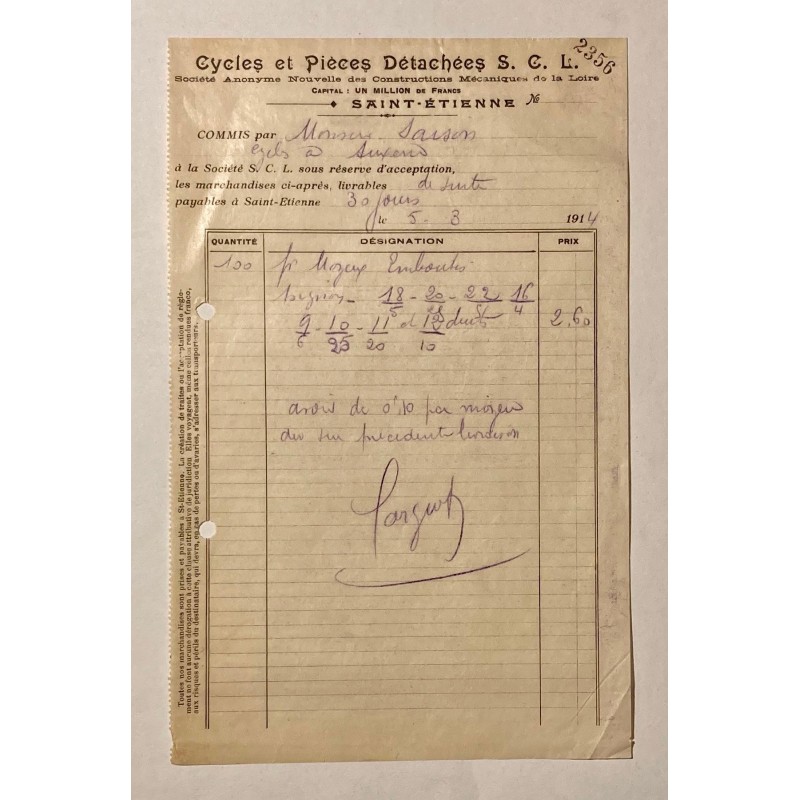 Cycles et Pièces Détachées S. C. L.
2356
Société Anonyme Nouvelle des Constructions Mécaniques de la Loire
CAPITAL : UN MILLION DE FRANCS
SAINT-ÉTIENNE №
COMMIS par Monsieur
Cycles à
à la Société S. C. L. sous réserve d'acceptation,
les marchandises ci-après, livrables de suite
payables à Saint-Etienne 30 jours
le 5 - 3 1914
QUANTITÉ DÉSIGNATION PRIX
100 pr Moyeux Emboutis
pignons 18 - 20 - 22 16
5 4
9 - 10 - 11 et 12 dents 2.60
6 25 20 10
avoir de 0f10 par moyeu
sur précédente livraison
Toutes nos marchandises sont prises et payables à St-Etienne. La création de traites ou l'acceptation de règle-
ment ne font aucune dérogation à cette clause attributive de juridiction Elles voyagent, même celles rendues franco,
aux risques et périls du destinataire, qui devra, en cas de pertes ou d'avaries, s'adresser aux transporteurs.